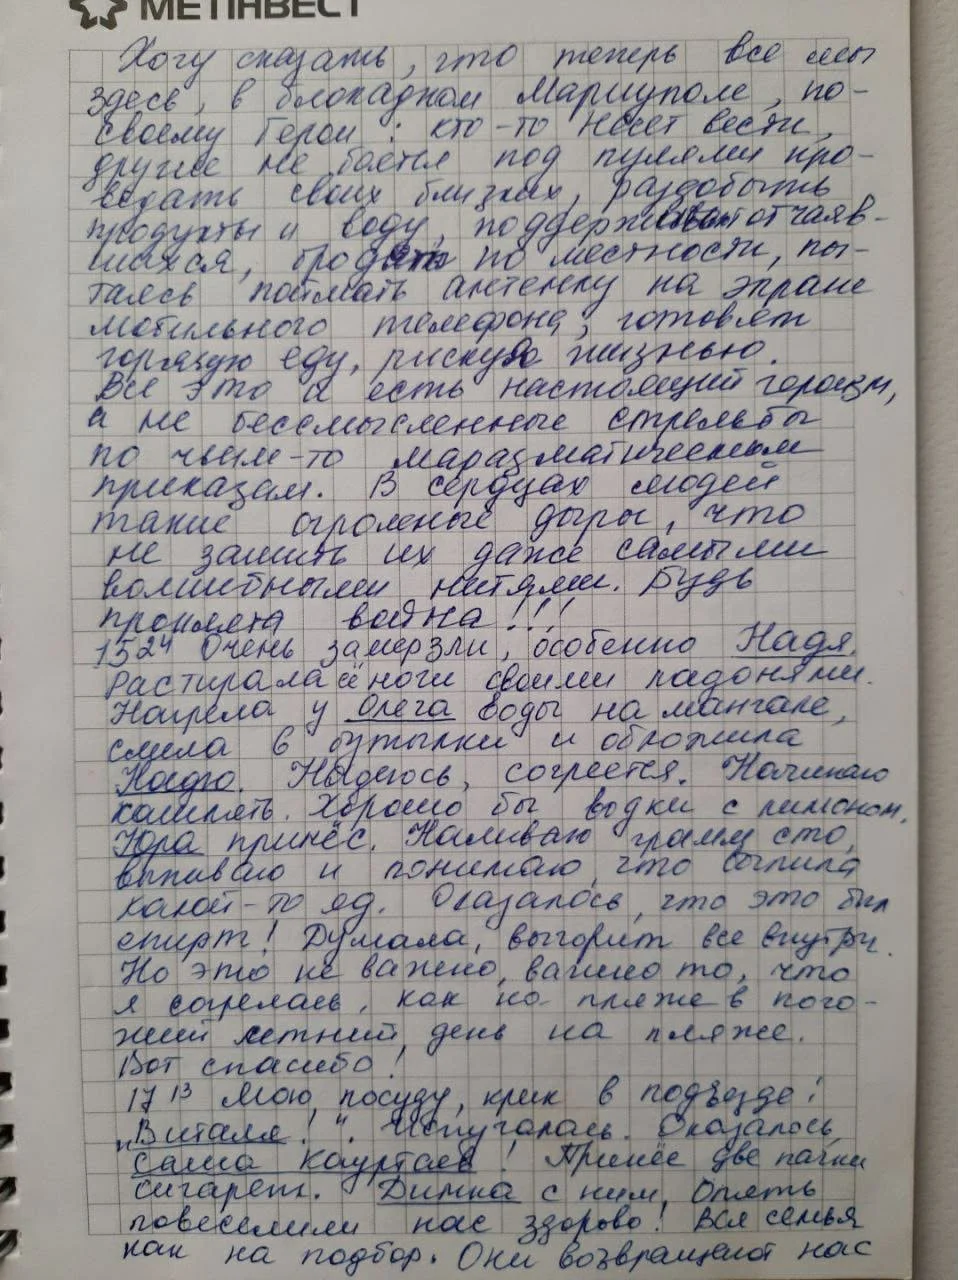 МЕТІНВЕСТ
Хочу сказать, что теперь все мы
здесь, в блокадном Мариуполе, по-
своему Герои: кто-то несет вести,
другие не боятся под пулями про-
ведать своих близких, раздобыть
продукты и воду, поддерживают отчаяв-
шихся, бродят по местности, пы-
таясь поймать антенку на экране
мобильного телефона, готовят
горячую еду, рискуя жизнью.
Все это и есть настоящий героизм,
а не бессмысленные стрельбы
по чьим-то маразматическим
приказам. В сердцах людей
такие огромные дыры, что
не зашить их даже самыми
волшебными нитями. Будь
проклята война!!!
15 24 Очень замерзли, особенно Надя.
Растирала ей ноги своими ладонями.
Нагрела у Олега воды на мангале,
слила в бутылки и обложила
Надю. Надеюсь, согреется. Начинаю
кашлять. Хорошо бы водки с лимоном.
Юра принёс. Наливаю грамм сто,
выпиваю и понимаю, что выпила
какой-то яд. Оказалось, что это был
спирт! Думала, выгорит все внутри.
Но это не важно, важно то, что
я согрелась, как на пляже в пого-
жий летний день на пляже.
Вот спасибо!
17 13 Мою посуду, крик в подъезде!
„Виталя!“. Испугалась. Оказалось,
Саша Кауртаев! Принёс две пачки
сигарет. Димка с ним. Опять
повеселили нас здорово! Вся семья
как на подбор. Они возвращают нас